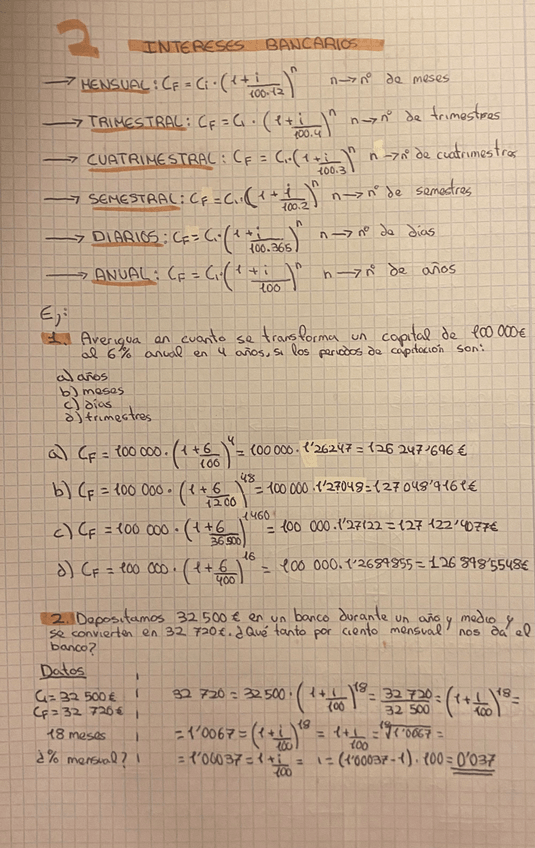 2 INTERESES BANCARIOS
→ MENSUAL: CF = Ci · (1 + i/100·12)^n n → nº de meses
→ TRIMESTRAL: CF = Ci · (1 + i/100·4)^n n → nº de trimestres
→ CUATRIMESTRAL: CF = Ci · (1 + i/100·3)^n n → nº de cuatrimestres
→ SEMESTRAL: CF = Ci · (1 + i/100·2)^n n → nº de semestres
→ DIARIOS: CF = Ci · (1 + i/100·365)^n n → nº de días
→ ANUAL: CF = Ci · (1 + i/100)^n n → nº de años
Ej:
1. Averigua en cuanto se transforma un capital de 100 000€
al 6% anual en 4 años, si los periodos de capitación son:
a) años
b) meses
c) días
d) trimestres
a) CF = 100 000 · (1 + 6/100)^4 = 100 000 · 1'26247 = 126 247'696 €
b) CF = 100 000 · (1 + 6/1200)^48 = 100 000 · 1'27048 = 127 048'9161 €
c) CF = 100 000 · (1 + 6/36500)^1460 = 100 000 · 1'27122 = 127 122'4077€
d) CF = 100 000 · (1 + 6/400)^16 = 100 000 · 1'2689855 = 126 898'5548€
2. Depositamos 32 500€ en un banco durante un año y medio y
se convierten en 32 720€. ¿Qué tanto por ciento mensual nos da el
banco?
Datos
Ci = 32 500€
CF = 32 720€
18 meses
¿% mensual?
32 720 = 32 500 · (1 + i/100)^18 = 32 720/32 500 = (1 + i/100)^18 =
= 1'0067 = (1 + i/100)^18 = 1 + i/100 = ¹⁸√1'0067 =
= 1'00037 = 1 + i/100 = i = (1'00037 - 1) · 100 = 0'037